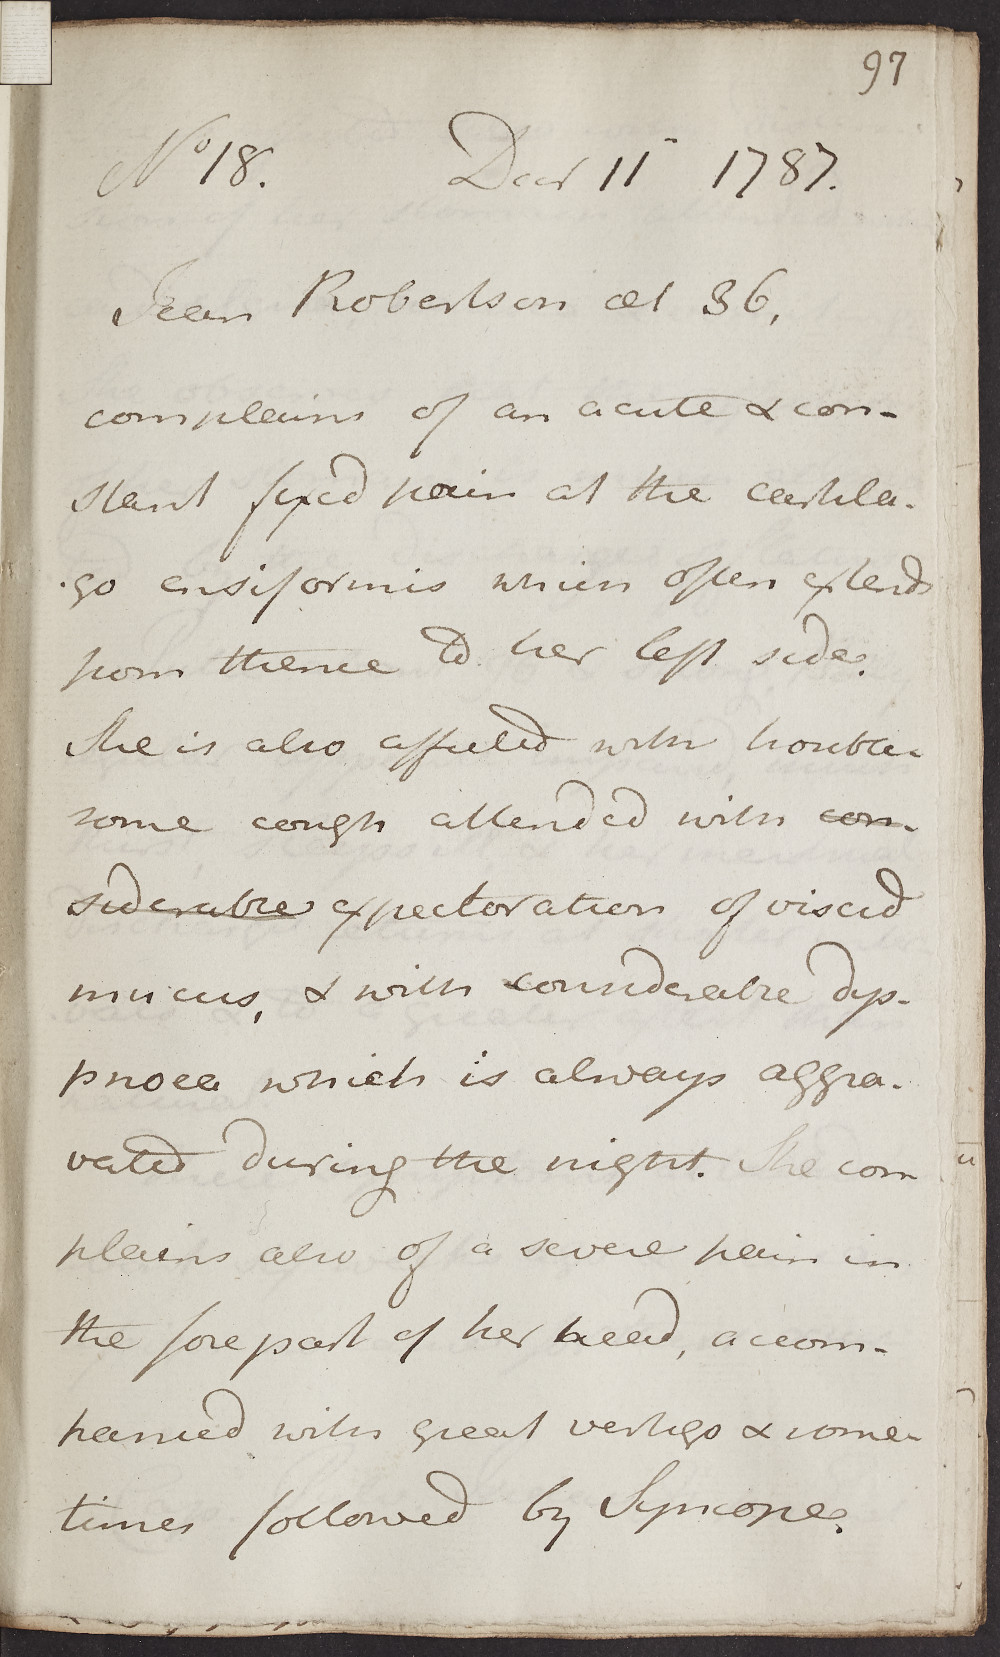 97
No 18. Decr 11 1787.
Jean Robertson æt 36,
complains of an acute & con-
stant fixed pain at the cartila-
go ensiformis which often extends
from thence to her left side.
She is also affected with trouble-
some cough attended with con-
siderable expectoration of viscid
mucus, & with considerable dys-
pnoea which is always aggra-
vated during the night. She com
plains also of a severe pain in
the forepart of her head, accom-
panied with great vertigo & some-
times followed by Syncope.